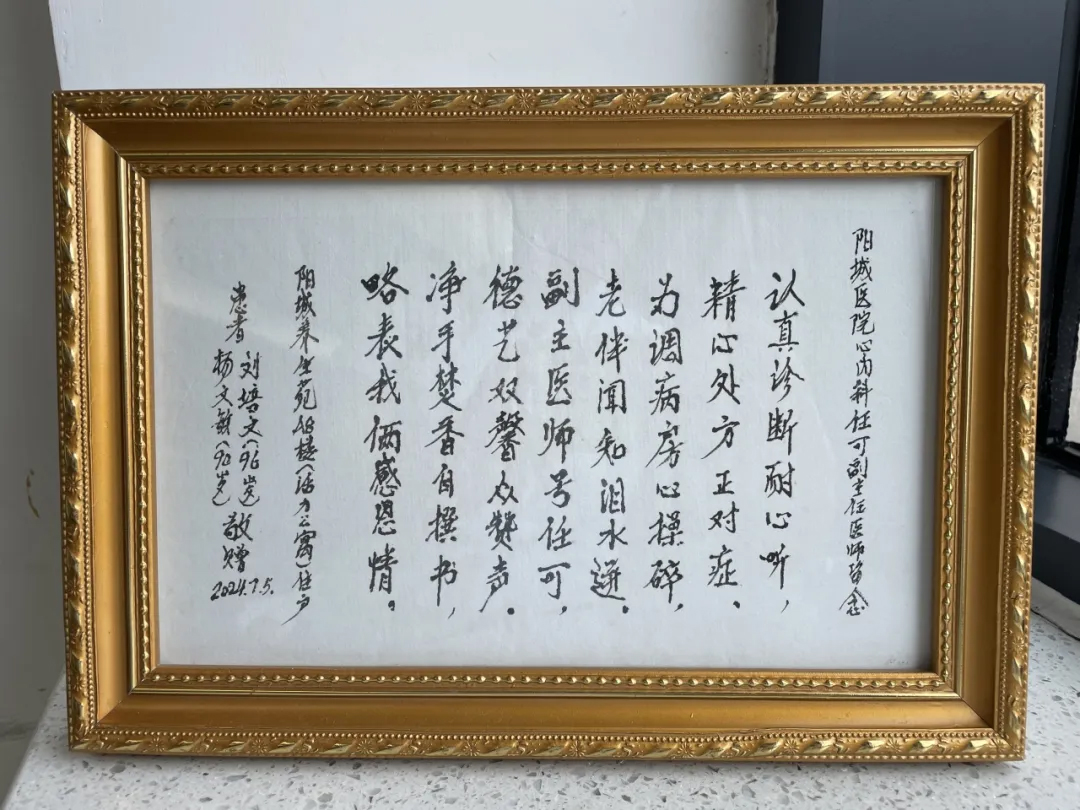 阳城医院心内科任可副主任医师留念
认真诊断耐心听，
精心处方正对症、
为调病房心操碎，
老伴闻知泪水迸。
副主医师号任可，
德艺双馨众赞声。
净手焚香自撰书，
略表我俩感恩情。
阳城养生苑住户
患者
刘培文（96岁）
杨文敏（90岁）
敬赠
2024.7.5.